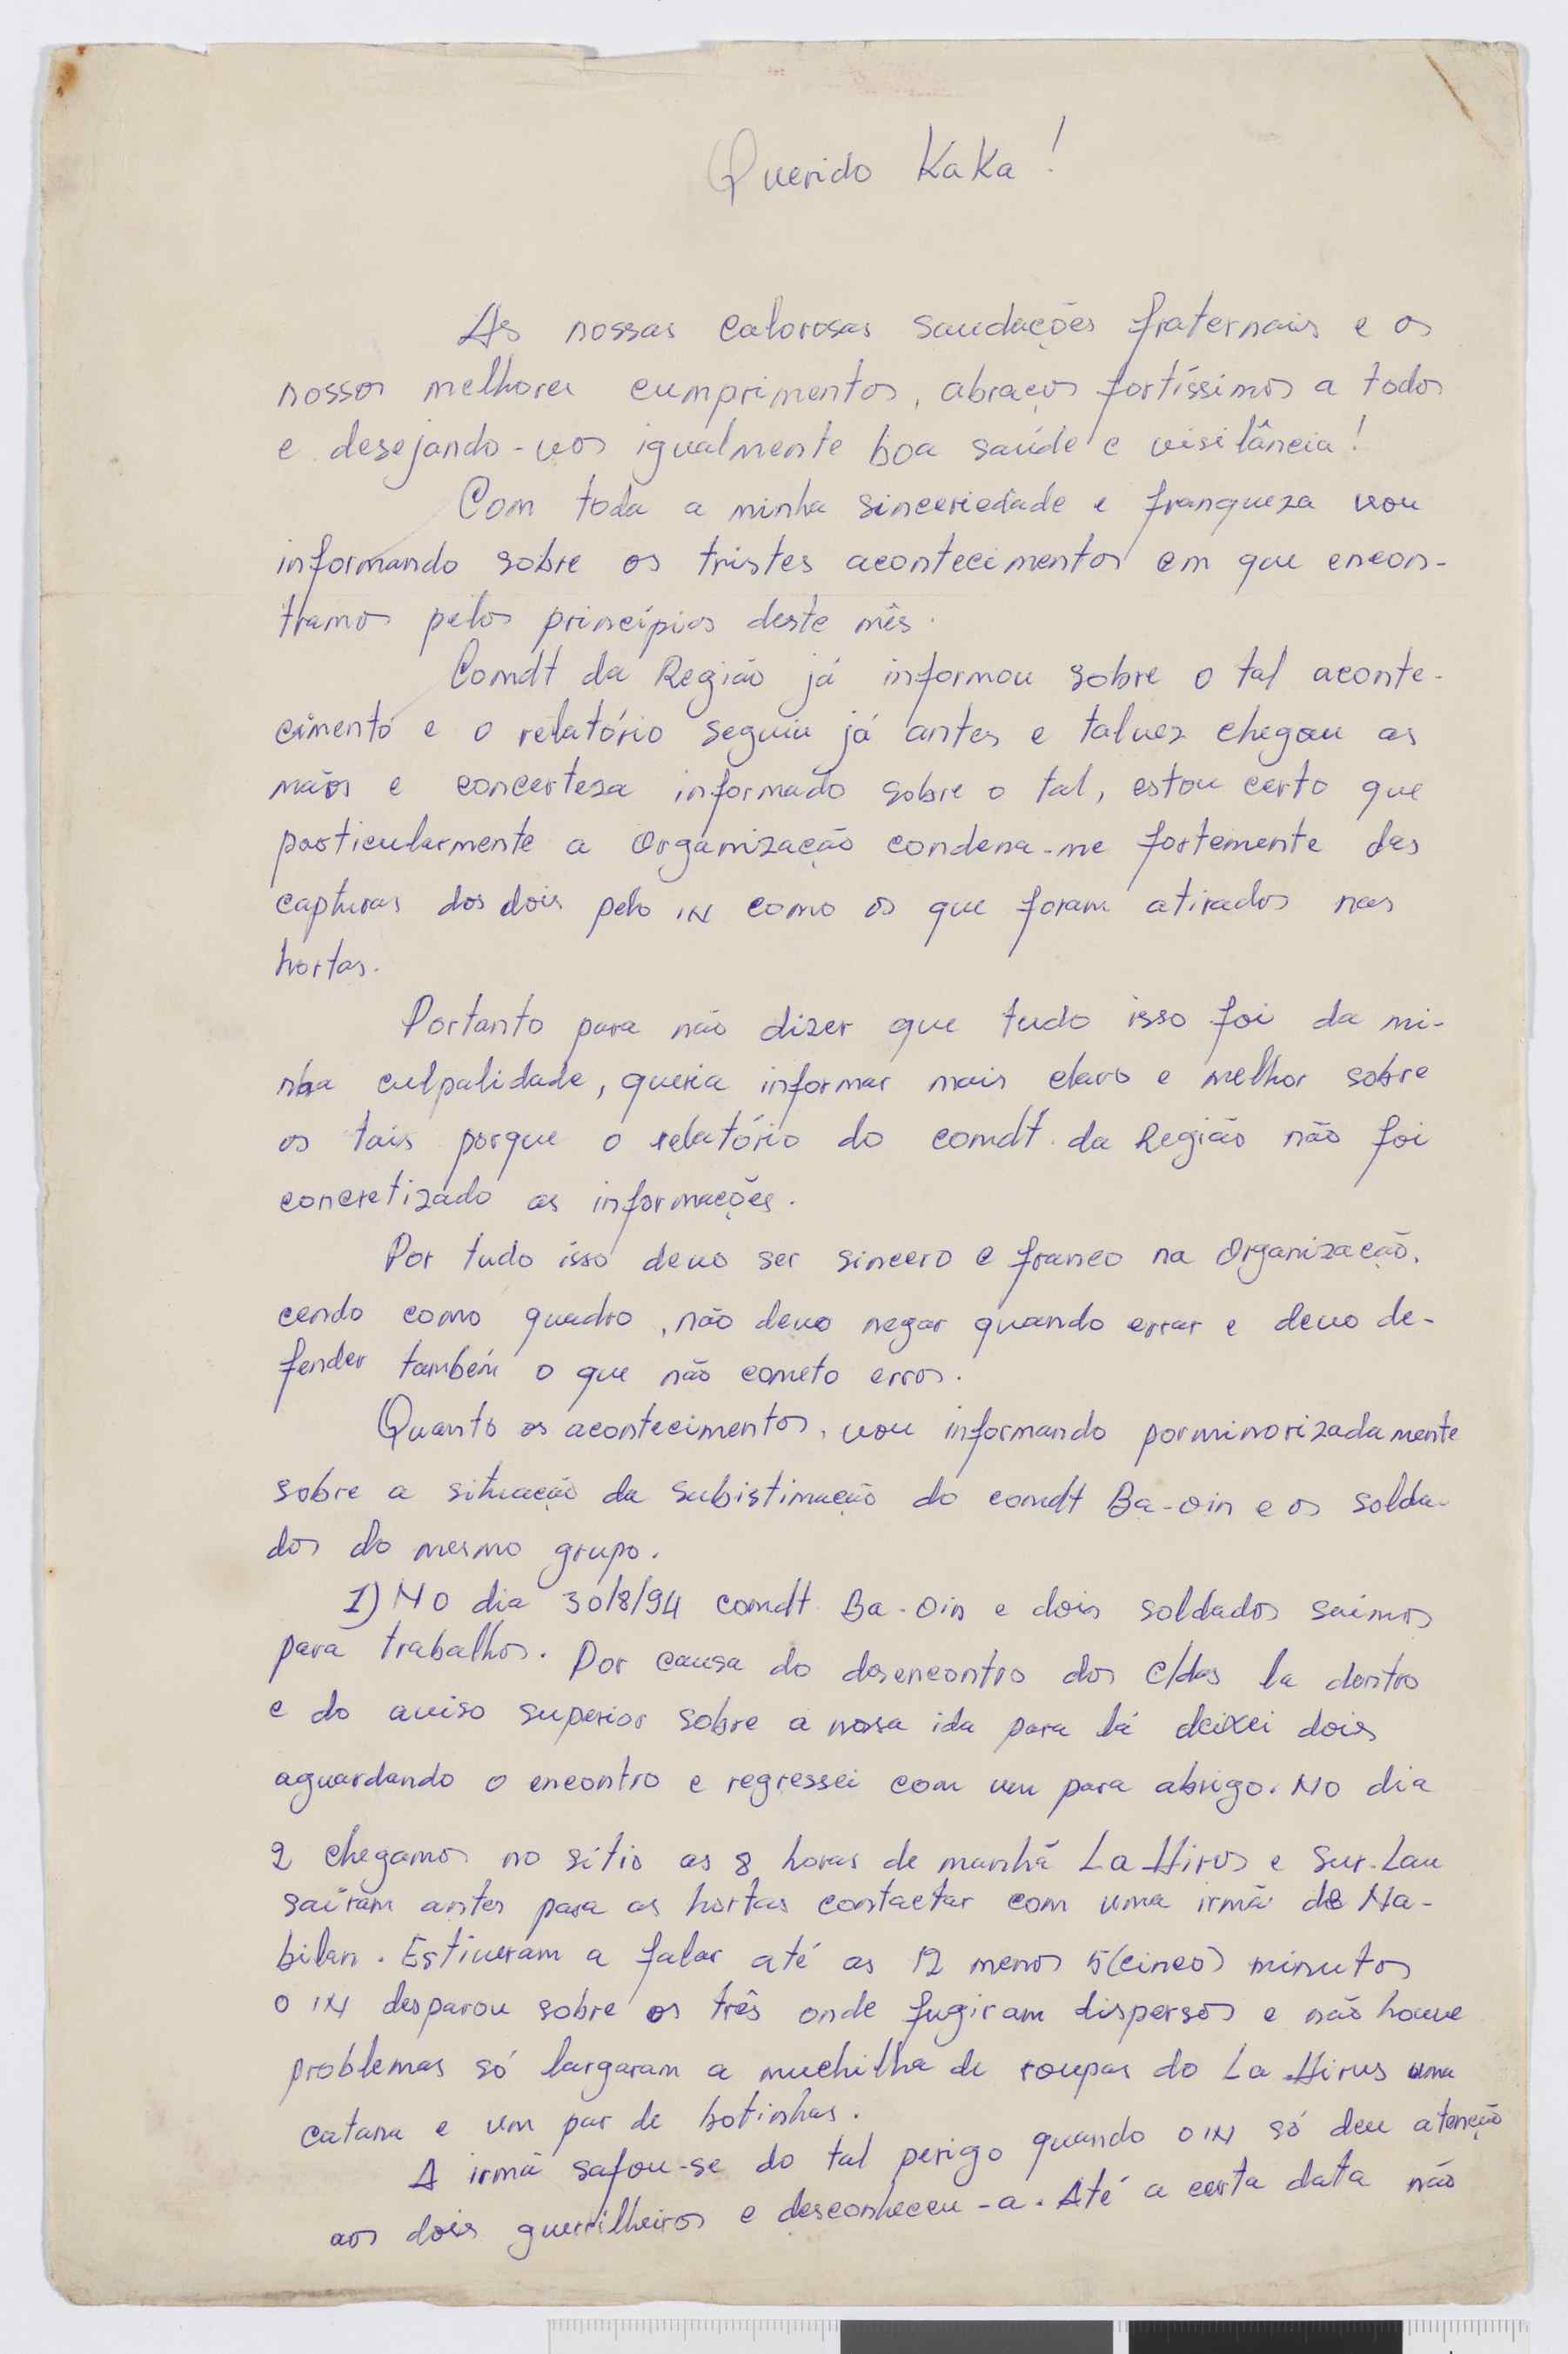 Querido KaKa!
As nossas calorosas saudações fraternais e os
nossos melhores cumprimentos, abraços fortíssimos a todos
e desejando-vos igualmente boa saúde e visilância!
Com toda a minha sinceriedade e franqueza vou
informando sobre os tristes acontecimentos em que encon-
tramos pelos princípios deste mês.
Comdt da Região já informou sobre o tal aconte-
cimento e o relatório seguiu já antes e talvez chegou as
mãos e concerteza informado sobre o tal, estou certo que
particularmente a Organização condena-me fortemente das
capturas dos dois pelo IN como os que foram atirados nas
hortas.
Portanto para não dizer que tudo isso foi da mi-
nha culpalidade, queria informar mais claro e melhor sobre
os tais porque o relatório do comdt da Região não foi
concretizado as informações.
Por tudo isso devo ser sincero e franco na Organização,
cendo como quadro, não devo negar quando errar e devo de-
fender também o que não cometo erros.
Quanto os acontecimentos, vou informando porminorizadamente
sobre a situação da subistimação do comdt Ba-Oin e os solda-
dos do mesmo grupo.
1) No dia 30/8/94 comdt Ba-Oin e dois soldados saímos
para trabalhos. Por causa do desencontro dos c/das la dentro
e do aviso superior sobre a nossa ida para lá deixei dois
aguardando o encontro e regressei com um para abrigo. No dia
2 chegamos no sítio as 8 horas de manhã La Hirus e Sur-Lau
saíram antes para as hortas contactar com uma irmã de Na-
bilan. Estiveram a falar até as 12 menos 5(cinco) minutos
o IN desparou sobre os três onde fugiram dispersos e não houve
problemas só largaram a muchilha de roupas do La Hirus uma
catana e um par de botinhas.
A irmã safou-se do tal perigo quando o IN só deu atenção
aos dois guerrilheiros e desconheceu-a. Até a certa data não